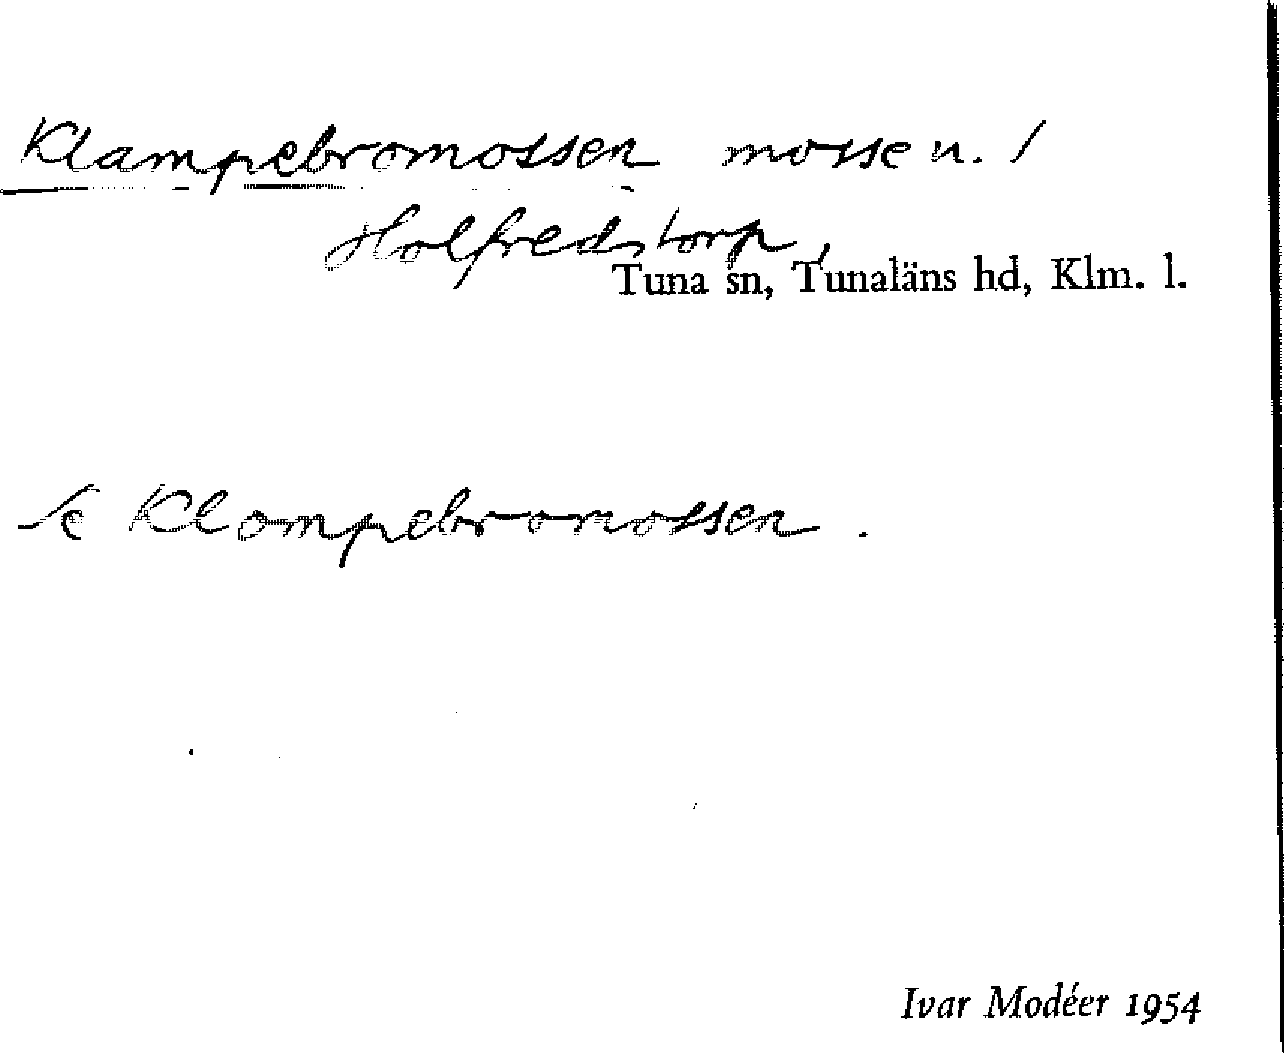 Klampebromossen mosse u. /
Holfredstorp,
Tuna sn, Tunaläns hd, Klm. l.
Se Klompebromossen.
Ivar Modéer 1954